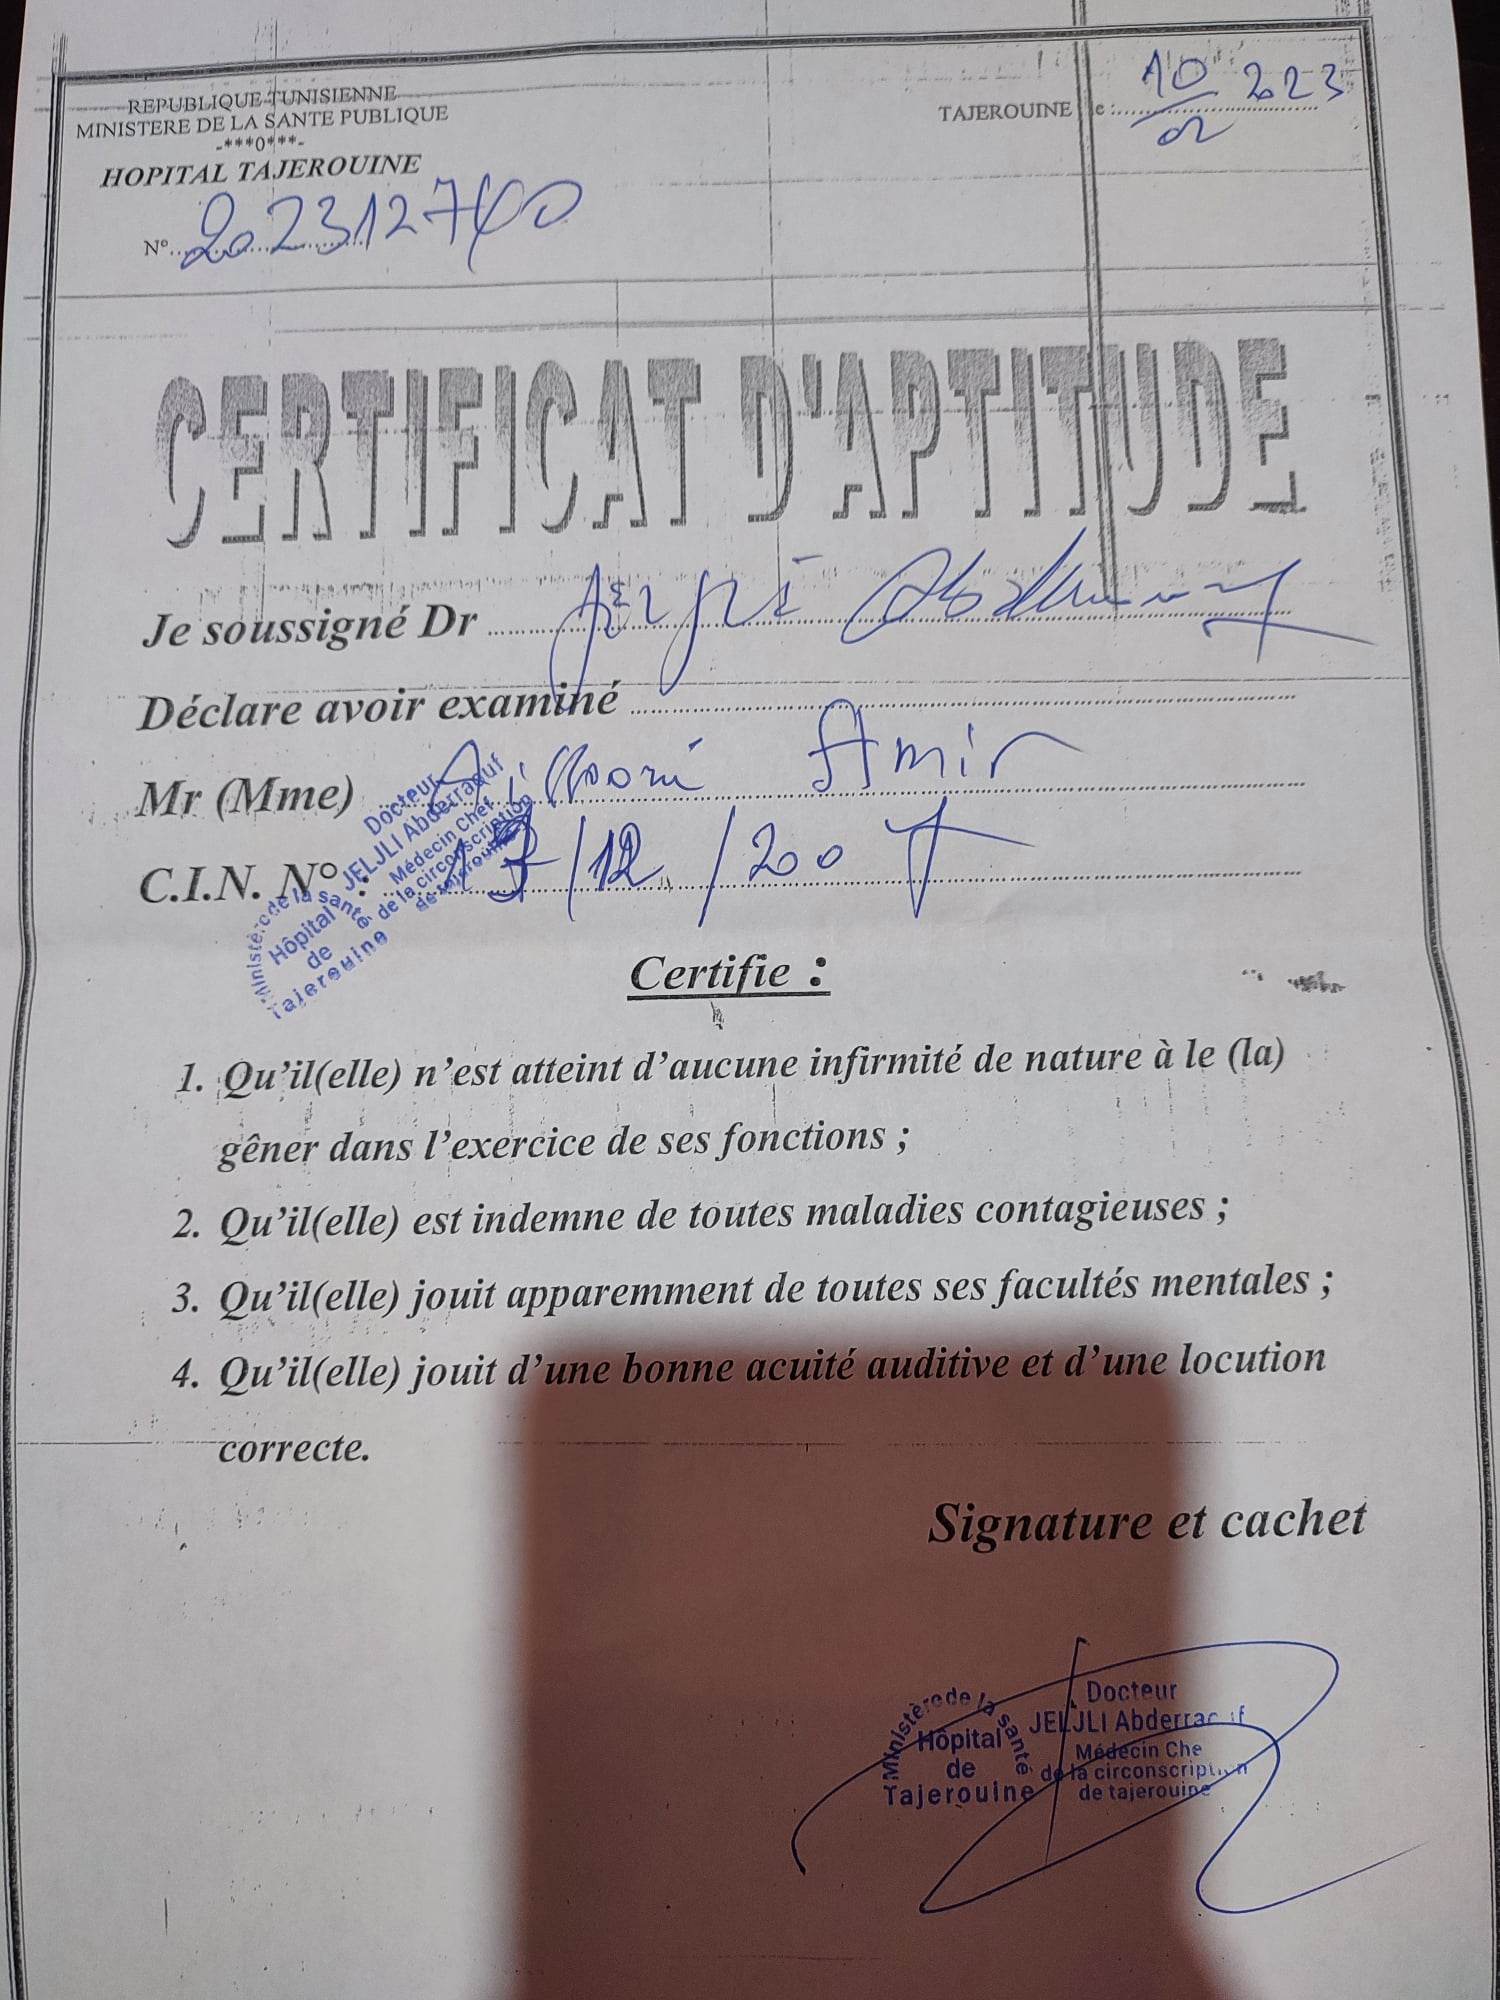 REPUBLIQUE TUNISIENNE
MINISTERE DE LA SANTE PUBLIQUE
-***0***-
HOPITAL TAJEROUINE
N°.....
TAJEROUINE le :.... 10/02 2023
CERTIFICAT D'APTITUDE
Je soussigné Dr
Déclare avoir examiné
Mr (Mme) Amir
C.I.N. N° : 13/12/200
Docteur
JELJLI Abderraouf
Médecin Chef
de la circonscription
de tajerouine
Ministère de la santé
Hôpital
de
Tajerouine
Certifie :
1. Qu'il(elle) n'est atteint d'aucune infirmité de nature à le (la)
gêner dans l'exercice de ses fonctions ;
2. Qu'il(elle) est indemne de toutes maladies contagieuses ;
3. Qu'il(elle) jouit apparemment de toutes ses facultés mentales ;
4. Qu'il(elle) jouit d'une bonne acuité auditive et d'une locution
correcte.
Signature et cachet
Ministère de la santé
Hôpital
de
Tajerouine
Docteur
JELJLI Abderraouf
Médecin Che
de la circonscription
de tajerouine